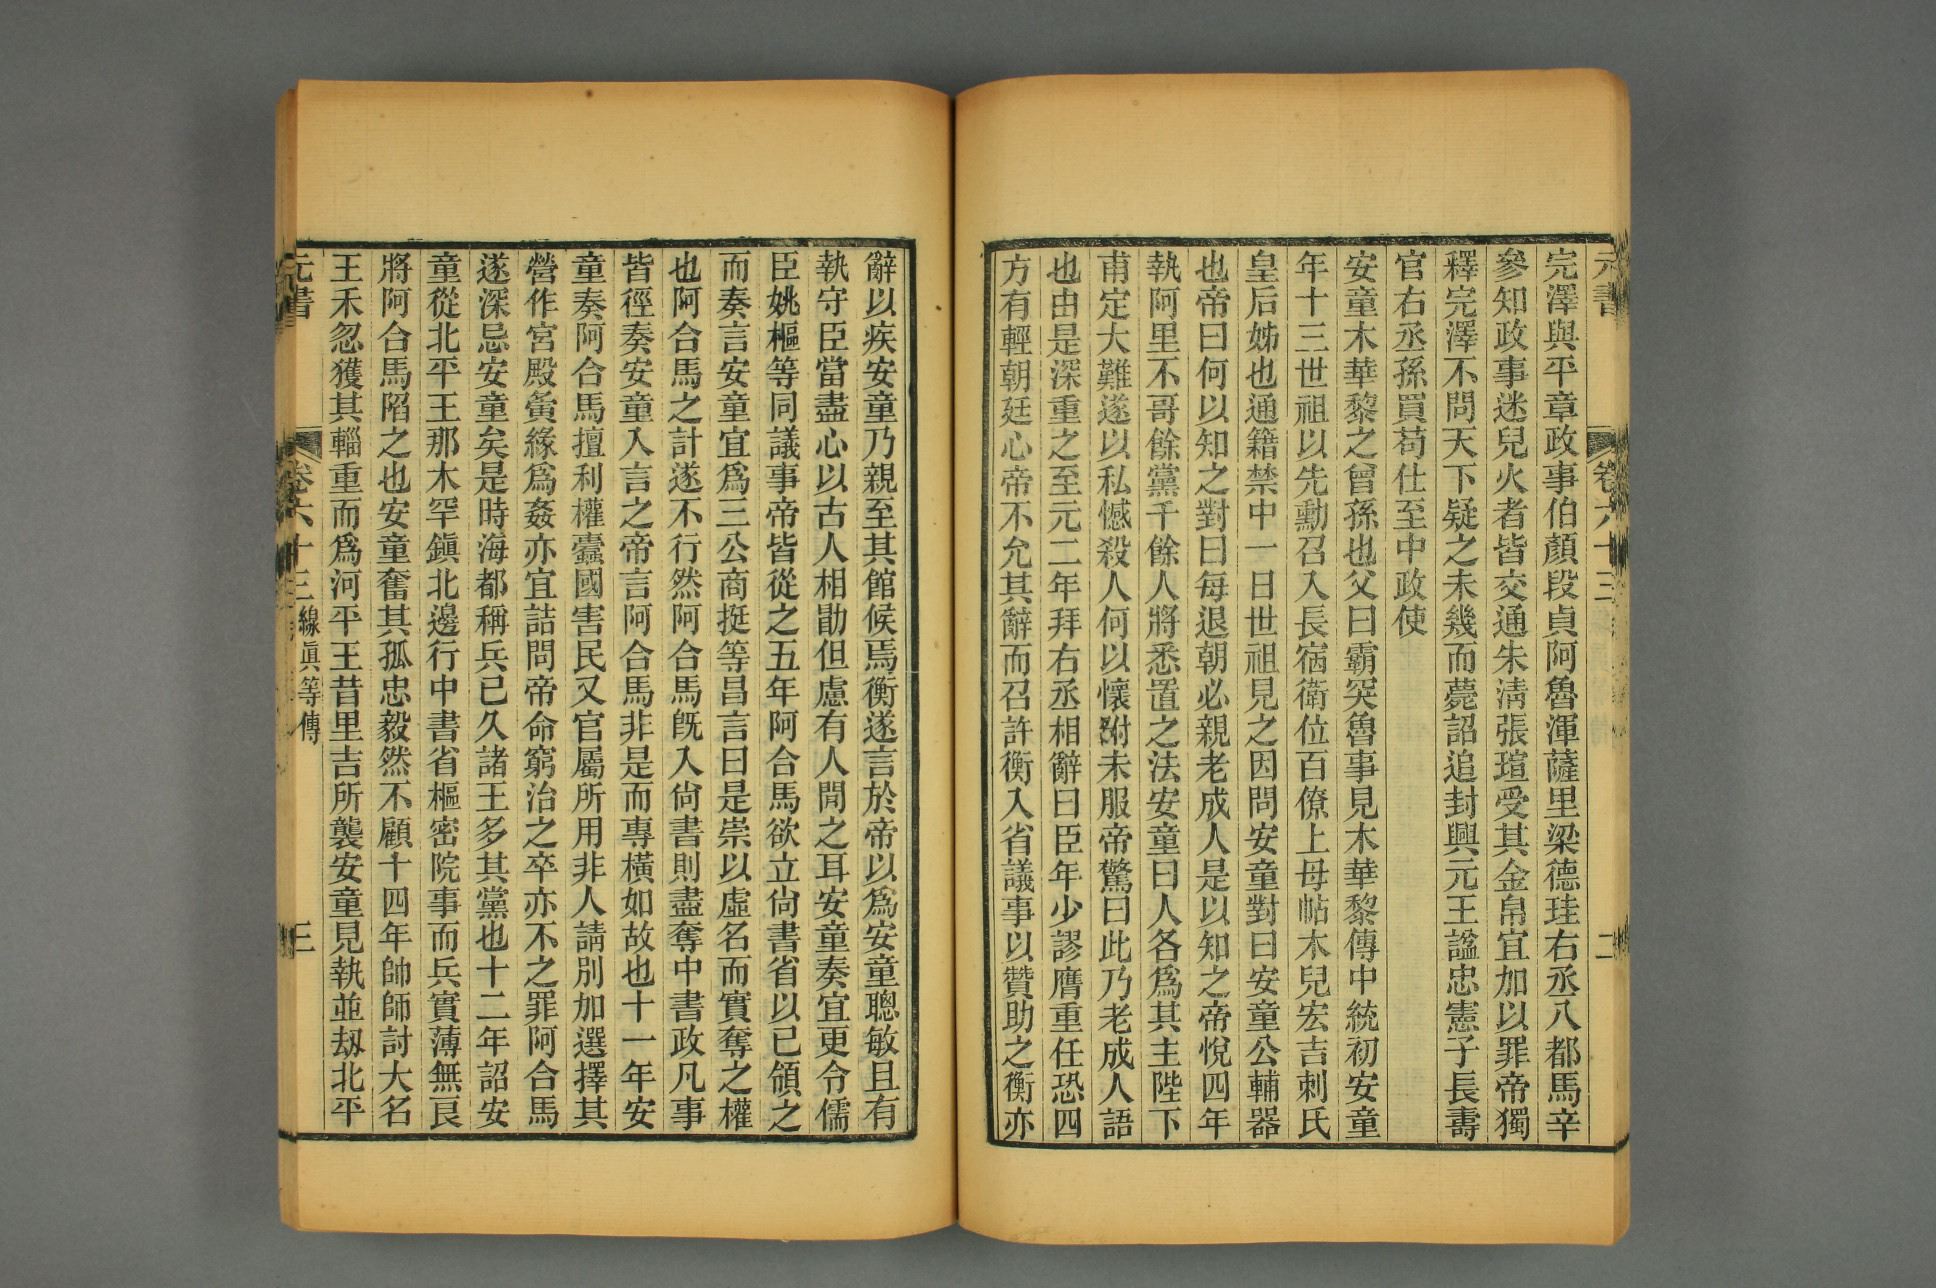 元書
卷六十三
二
完澤與平章政事伯顏段貞阿魯渾薩里梁德珪右丞八都馬辛
參知政事迷兒火者皆交通朱淸張瑄受其金帛宜加以罪帝獨
釋完澤不問天下疑之未幾而薨詔追封興元王諡忠憲子長壽
官右丞孫買苟仕至中政使
安童木華黎之曾孫也父曰霸突魯事見木華黎傳中統初安童
年十三世祖以先勳召入長宿衛位百僚上母帖木兒宏吉刺氏
皇后姊也通籍禁中一日世祖見之因問安童對曰安童公輔器
也帝曰何以知之對曰每退朝必親老成人是以知之帝悅四年
執阿里不哥餘黨千餘人將悉置之法安童曰人各爲其主陛下
甫定大難遂以私憾殺人何以懷附未服帝驚曰此乃老成人語
也由是深重之至元二年拜右丞相辭曰臣年少謬膺重任恐四
方有輕朝廷心帝不允其辭而召許衡入省議事以贊助之衡亦
辭以疾安童乃親至其館候焉衡遂言於帝以爲安童聰敏且有
執守臣當盡心以古人相勖但慮有人閒之耳安童奏宜更令儒
臣姚樞等同議事帝皆從之五年阿合馬欲立尙書省以已領之
而奏言安童宜爲三公商挺等昌言曰是崇以虛名而實奪之權
也阿合馬之計遂不行然阿合馬旣入尙書則盡奪中書政凡事
皆徑奏安童入言之帝言阿合馬非是而專橫如故也十一年安
童奏阿合馬擅利權蠹國害民又官屬所用非人請別加選擇其
營作宮殿夤緣爲姦亦宜詰問帝命窮治之卒亦不之罪阿合馬
遂深忌安童矣是時海都稱兵已久諸王多其黨也十二年詔安
童從北平王那木罕鎭北邊行中書省樞密院事而兵實薄無良
將阿合馬陷之也安童奮其孤忠毅然不顧十四年帥師討大名
王禾忽獲其輜重而爲河平王昔里吉所襲安童見執並刼北平
元書
卷六十三
線眞等傳
三